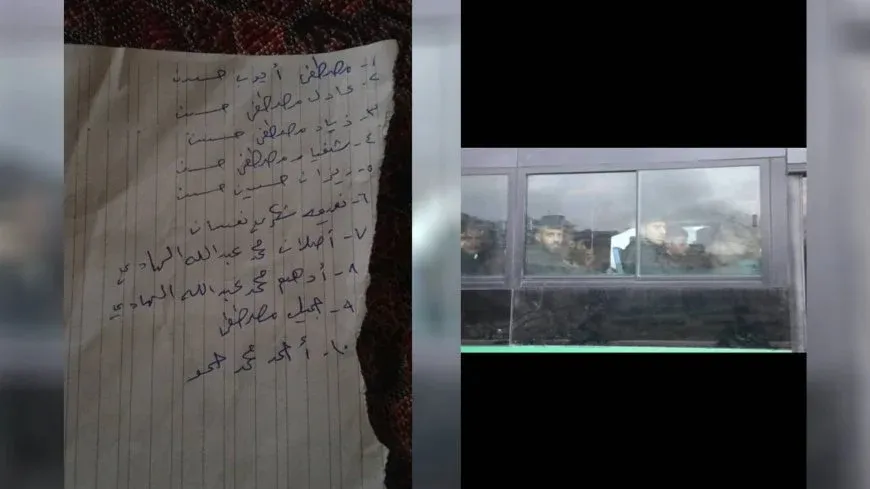 ١- مصطفى أيوب حسين
٢- عادل مصطفى حسين
٣- زياد مصطفى حسين
٤- مصطفى حسين
٥- حسين حسن
٦- نعسان
٧- أصلان محمد عبدالله الهادي
٨- أدهم محمد عبدالله الهادي
٩- جميل مصطفى
١٠- أحمد محمد حمو